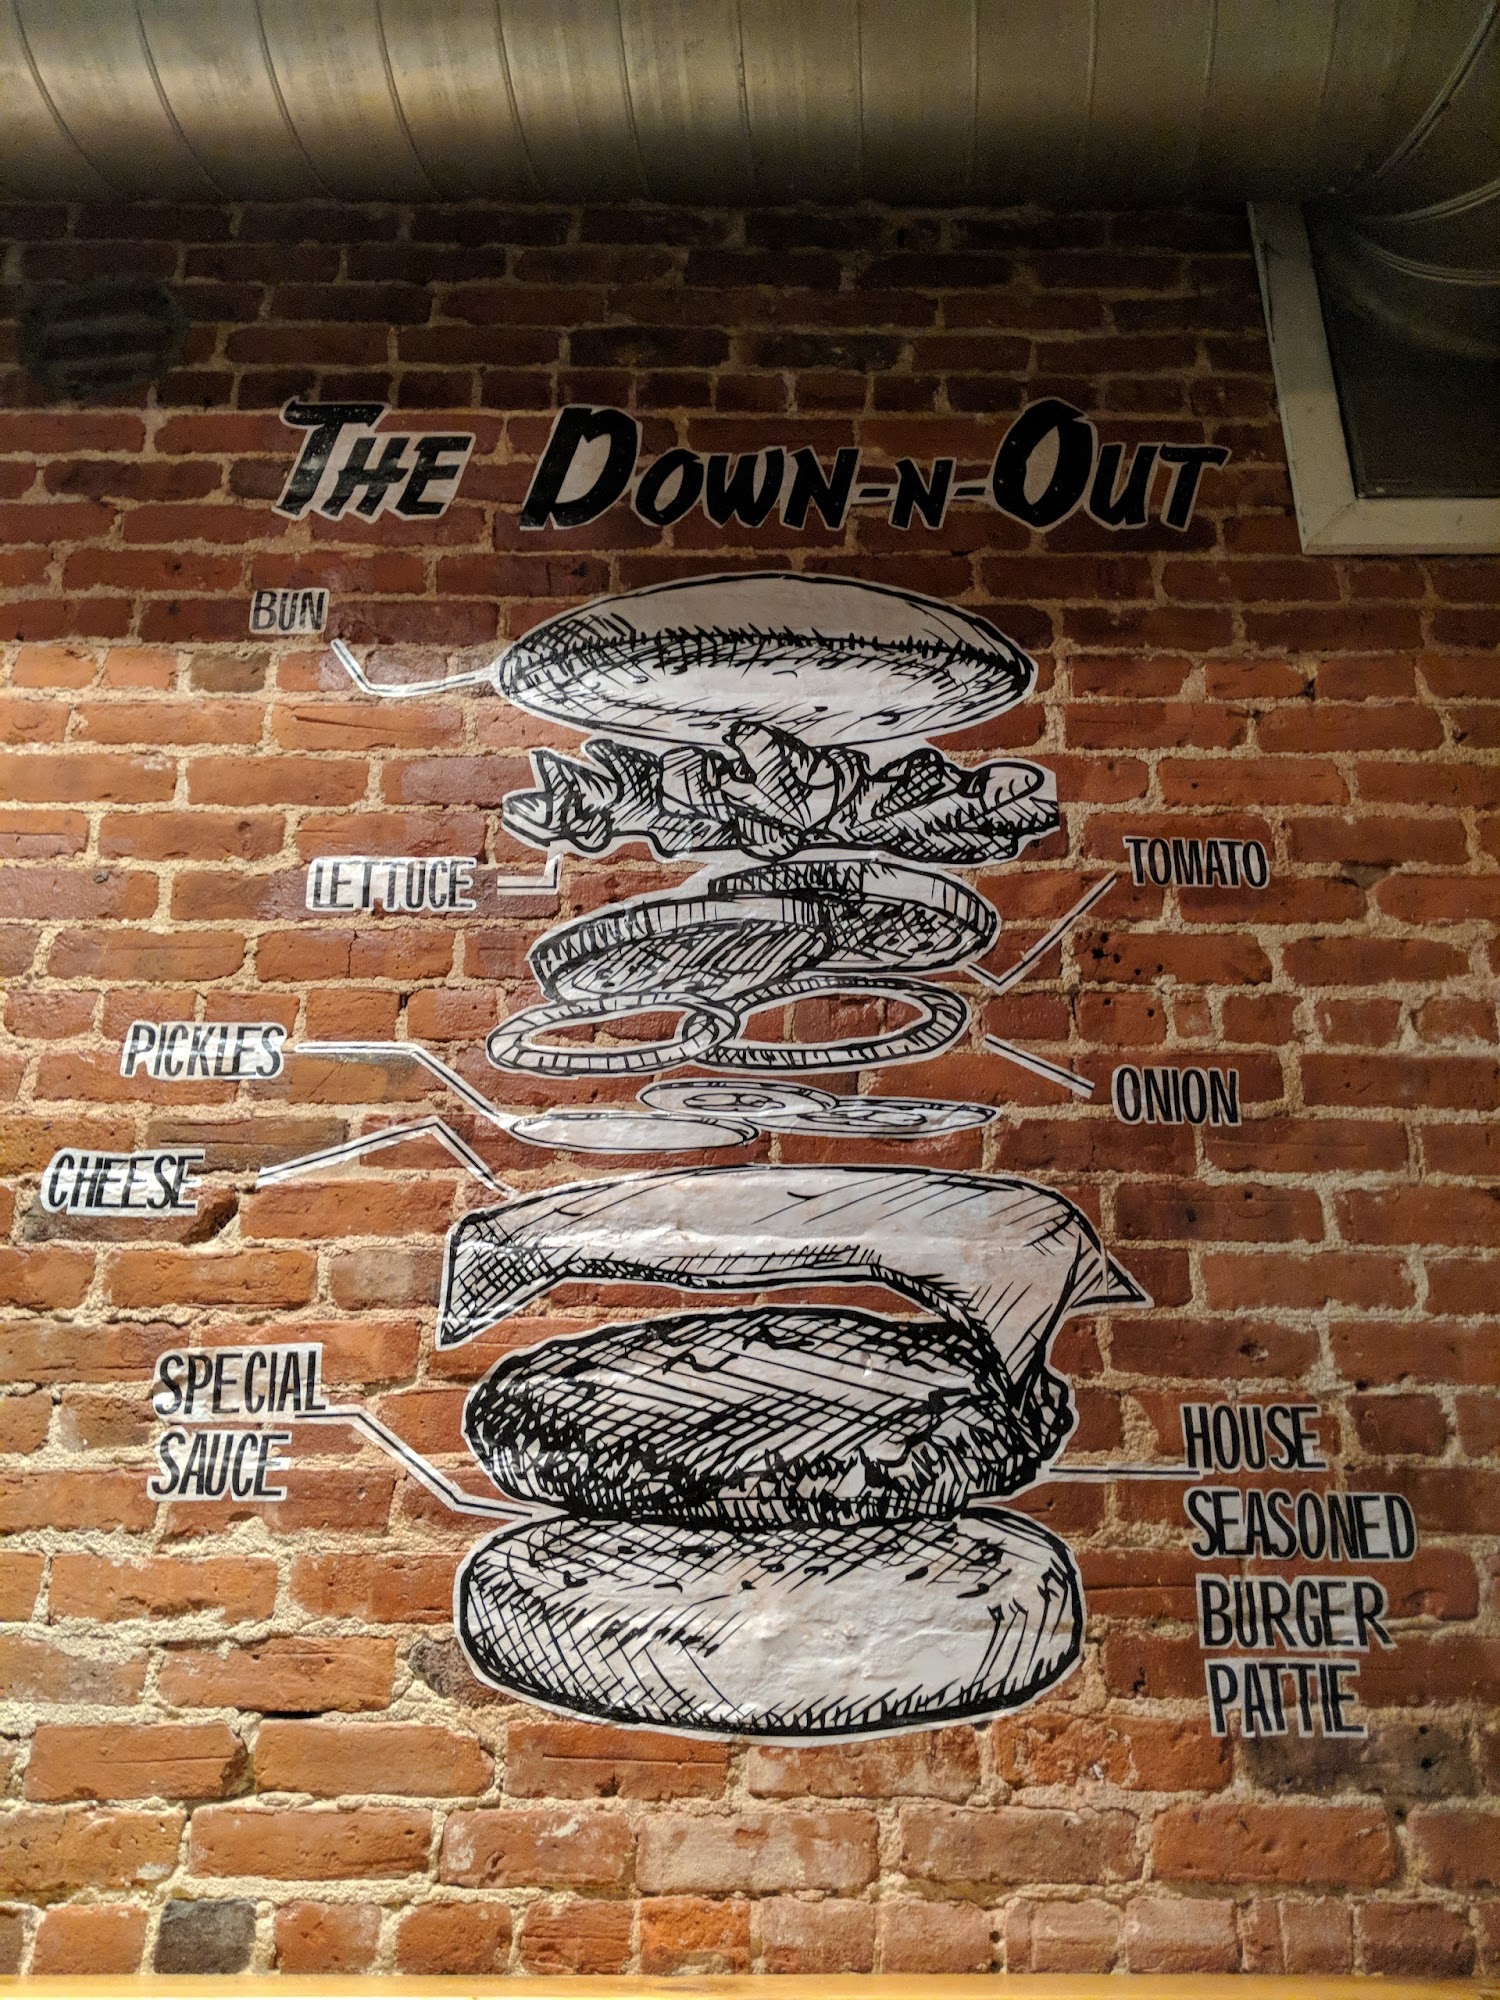 THE DOWN-N-OUT
BUN
LETTUCE
TOMATO
PICKLES
ONION
CHEESE
SPECIAL
SAUCE
HOUSE
SEASONED
BURGER
PATTIE